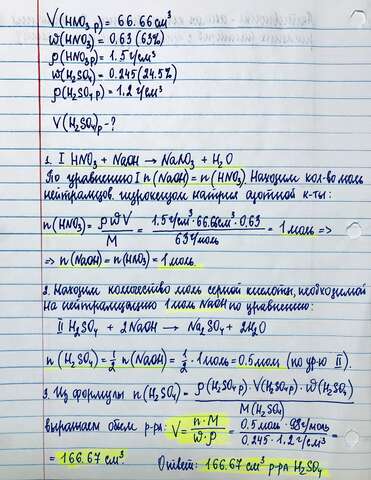 V(HNO₃ р) = 66.66 см³
ω(HNO₃) = 0.63 (63%)
ρ(HNO₃ р) = 1.5 г/см³
ω(H₂SO₄) = 0.245 (24.5%)
ρ(H₂SO₄ р) = 1.2 г/см³
V(H₂SO₄)р - ?
1. I HNO₃ + NaOH → NaNO₃ + H₂O
По уравнению I n(NaOH) = n(HNO₃). Находим кол-во моль
нейтрализ. гидроксидом натрия азотной к-ты:
n(HNO₃) = ρ·ω·V / M = 1.5 г/см³ · 66.66 см³ · 0.63 / 63 г/моль = 1 моль =>
=> n(NaOH) = n(HNO₃) = 1 моль
2. Находим количество моль серной кислоты, необходимой
на нейтрализацию 1 моль NaOH по уравнению:
II H₂SO₄ + 2NaOH → Na₂SO₄ + 2H₂O
n(H₂SO₄) = 1/2 n(NaOH) = 1/2 · 1 моль = 0.5 моль (по ур-ю II).
3. Из формулы n(H₂SO₄) = ρ(H₂SO₄ р) · V(H₂SO₄ р) · ω(H₂SO₄) / M(H₂SO₄)
выражаем объем р-ра: V = n·M / ω·ρ = 0.5 моль · 98 г/моль / 0.245 · 1.2 г/см³ =
= 166.67 см³. Ответ: 166.67 см³ р-ра H₂SO₄